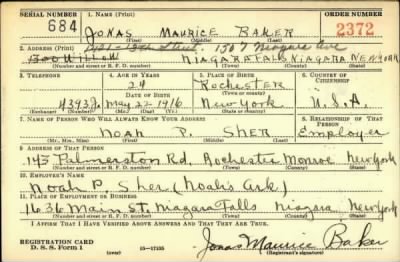 SERIAL NUMBER 1. NAME (Print) ORDER NUMBER
684 JONAS MAURICE BAKER 2372
(First) (Middle) (Last)
2. ADDRESS (Print) 1921-13th Street. 1507 Niagara Ave
1300 WILLOW NIAGARA FALLS NIAGARA NEW YORK
(Number and street or R. F. D. number) (Town) (County) (State)
3. TELEPHONE 4. AGE IN YEARS 5. PLACE OF BIRTH 6. COUNTRY OF CITIZENSHIP
24 Rochester
DATE OF BIRTH (Town or county)
4393J May 22 1916 New York U.S.A.
(Exchange) (No.) (Mo.) (Day) (Yr.) (State or country)
7. NAME OF PERSON WHO WILL ALWAYS KNOW YOUR ADDRESS 8. RELATIONSHIP OF THAT PERSON
NOAH P. SHER Employer
(Mr., Mrs., Miss) (First) (Middle) (Last)
9. ADDRESS OF THAT PERSON
145 Palmerston Rd. Rochester Monroe New York
(Number and street or R. F. D. number) (Town) (County) (State)
10. EMPLOYER'S NAME
Noah P. Sher (Noah's Ark)
11. PLACE OF EMPLOYMENT OR BUSINESS
1636 Main St. Niagara Falls Niagara New York
(Number and street or R. F. D. number) (Town) (County) (State)
I AFFIRM THAT I HAVE VERIFIED ABOVE ANSWERS AND THAT THEY ARE TRUE.
REGISTRATION CARD
D. S. S. Form 1 (over) 16—17105 Jonas Maurice Baker
(Registrant's signature)